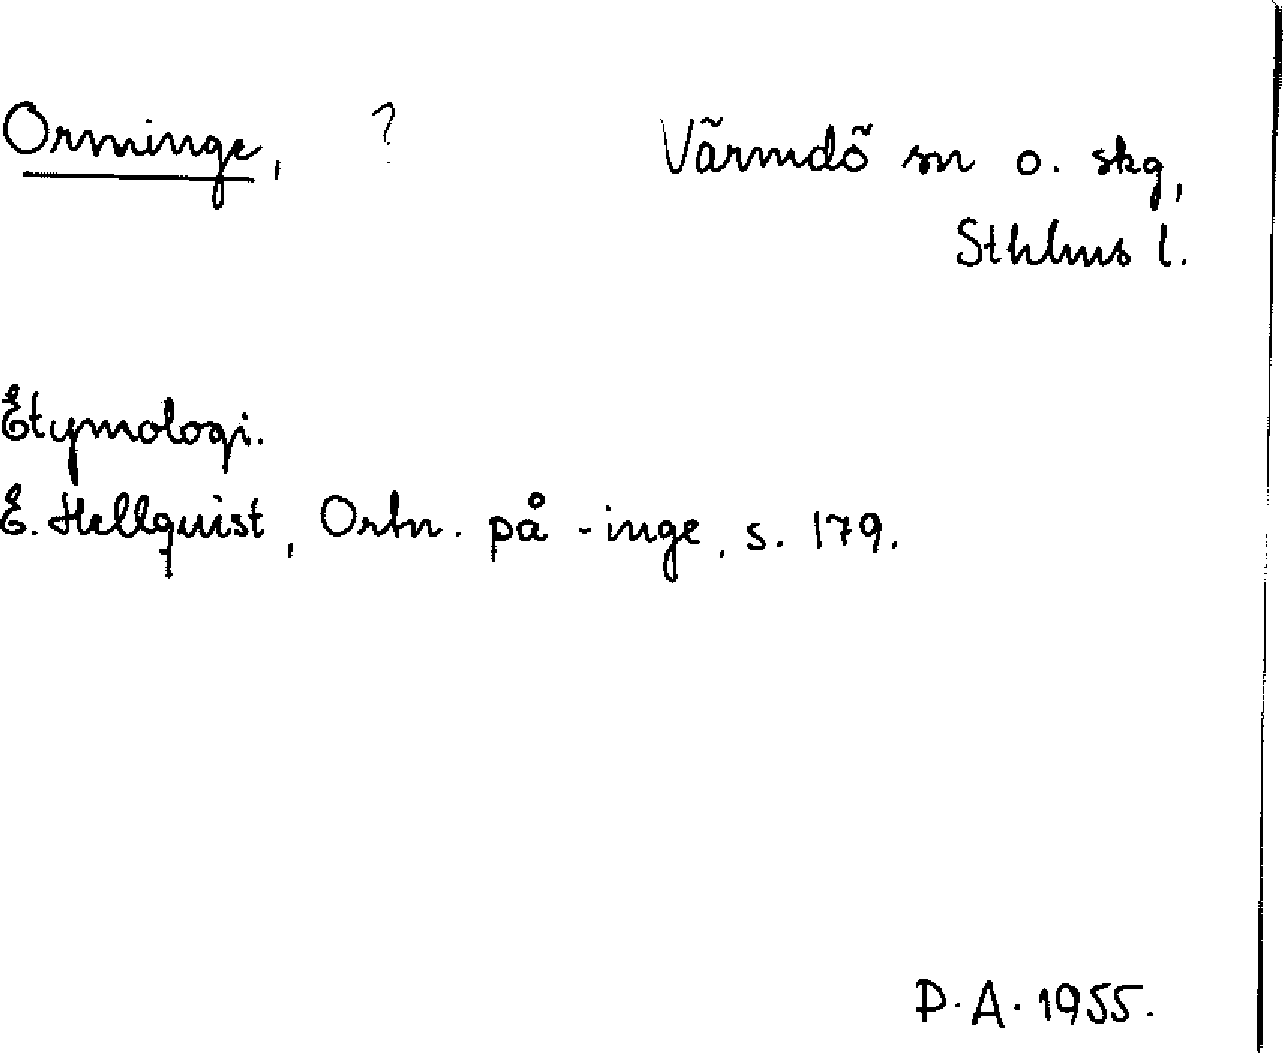 Orminge, ? Värmdö sn o. skg,
Sthlms l.
Etymologi.
E. Hellquist, Ortn. på -inge, s. 179.
D.A. 1955.